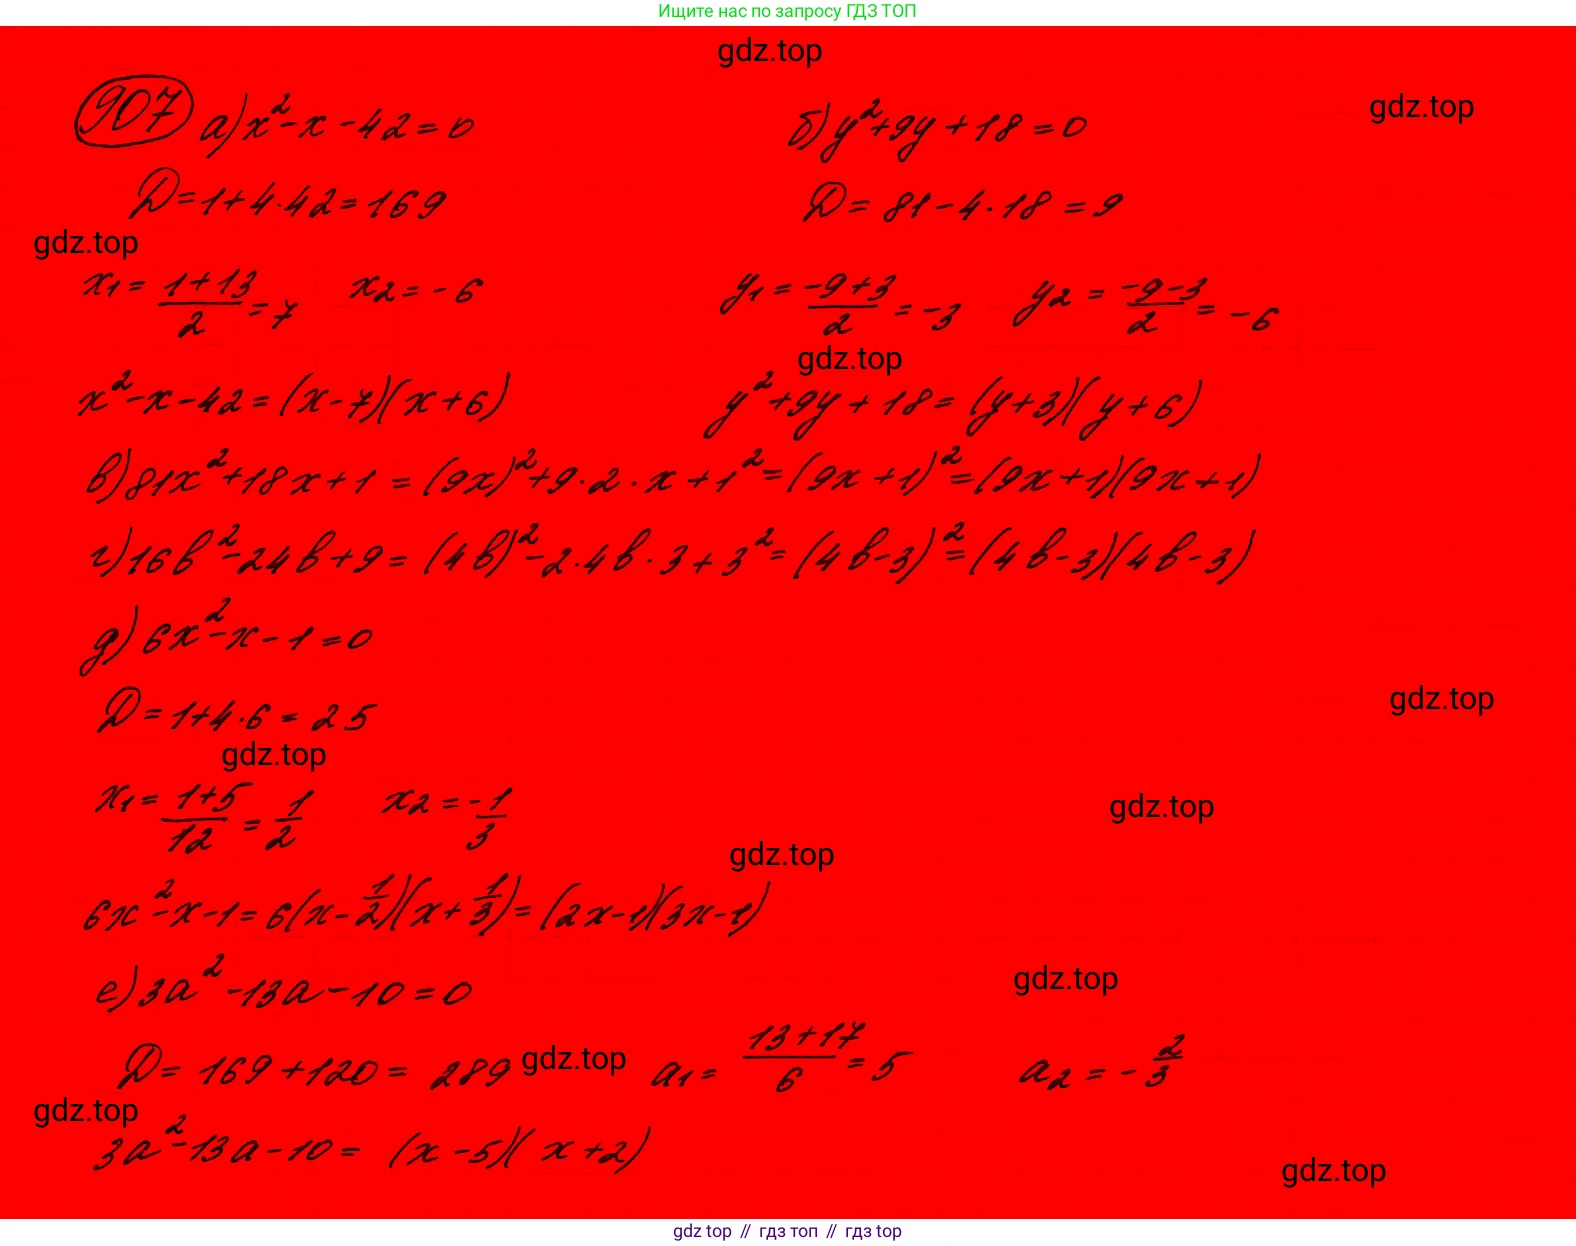 Ищите нас по запросу ГДЗ ТОП
gdz.top
907 а) x²-x-42=0 б) y²+9y+18=0 gdz.top
D=1+4·42=169 D=81-4·18=9
gdz.top
x₁=(1+13)/2=7 x₂=-6 y₁=(-9+3)/2=-3 y₂=(-9-3)/2=-6
gdz.top
x²-x-42=(x-7)(x+6) y²+9y+18=(y+3)(y+6)
в) 81x²+18x+1=(9x)²+9·2·x+1²=(9x+1)²=(9x+1)(9x+1)
г) 16b²-24b+9=(4b)²-2·4b·3+3²=(4b-3)²=(4b-3)(4b-3)
д) 6x²-x-1=0
D=1+4·6=25 gdz.top
gdz.top
x₁=(1+5)/12=1/2 x₂=-1/3 gdz.top
gdz.top
6x²-x-1=6(x-1/2)(x+1/3)=(2x-1)(3x-1)
е) 3a²-13a-10=0 gdz.top
D=169+120=289 gdz.top a₁=(13+17)/6=5 a₂=-2/3
gdz.top
3a²-13a-10=(x-5)(x+2) gdz.top
gdz top // гдз топ // гдз top